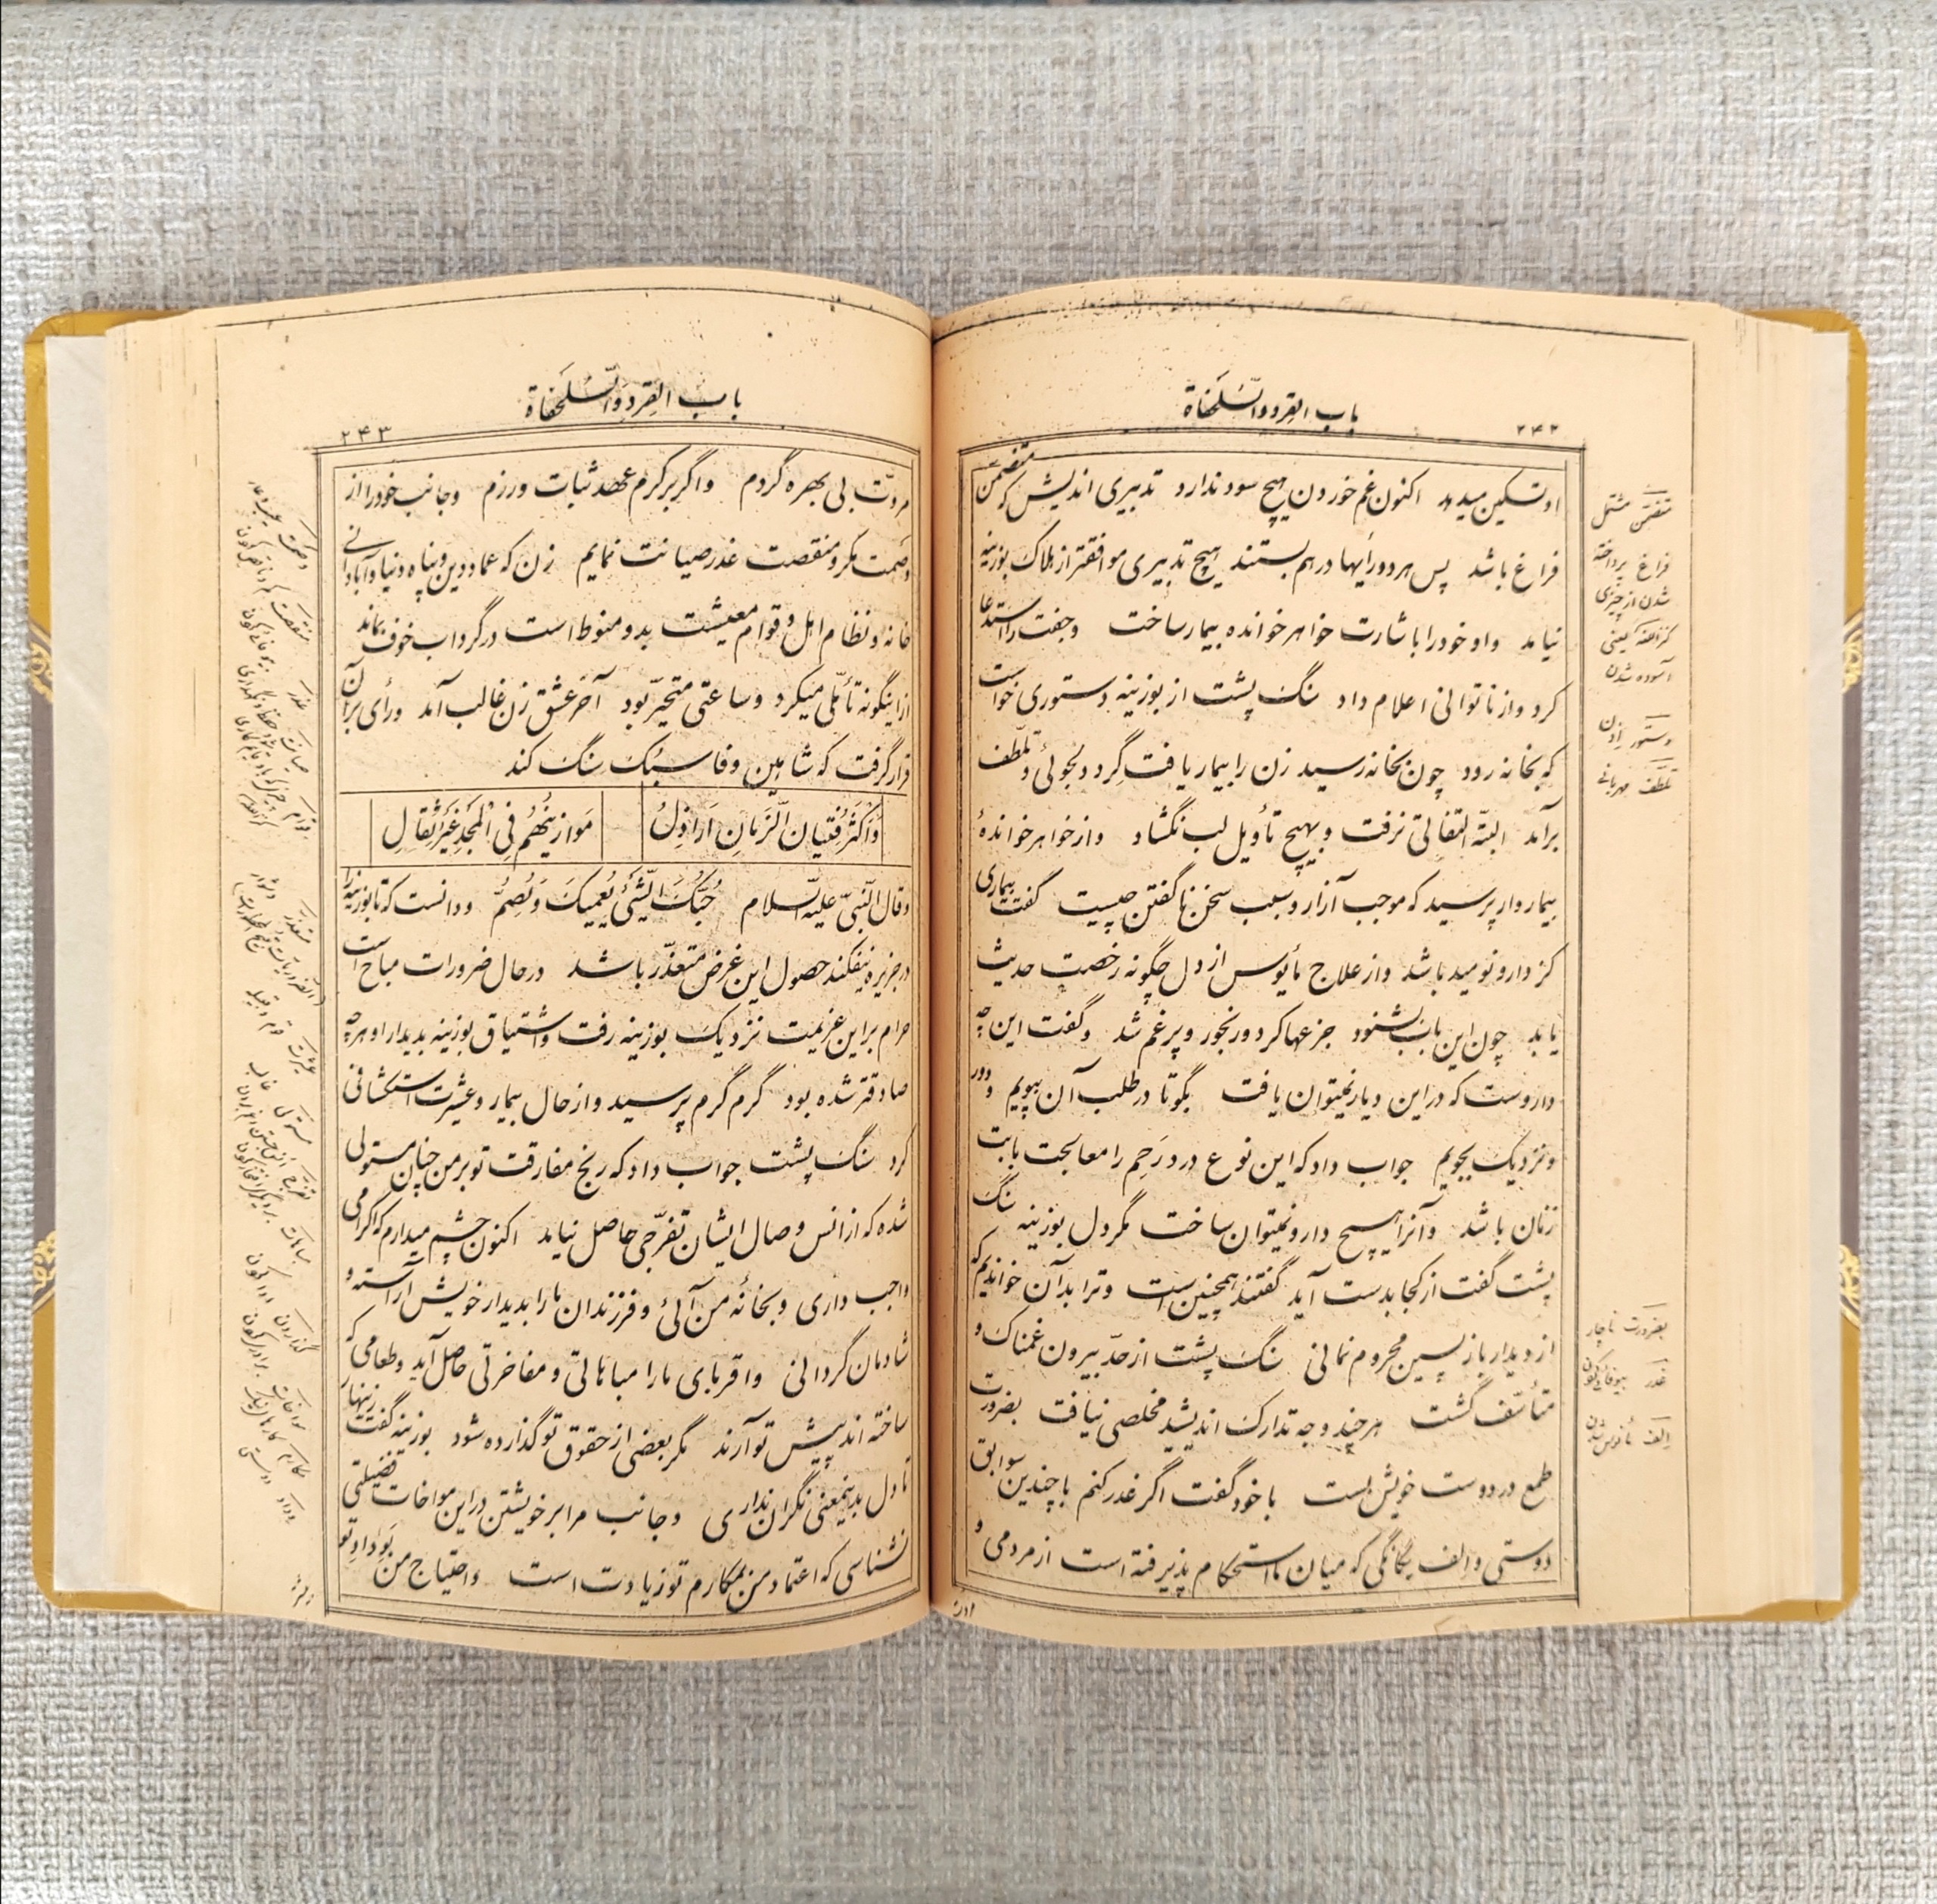 باب القرد والسلحفاة
۲۴۲
او تسکین میدهد اکنون غم خوردن هیچ سود ندارد تدبیری اندیش که متضمن
فراغ باشد پس هر دو رایها در هم بستند هیچ تدبیری موافقتر از هلاک بوزینه
نیامد و او خود را باشارت خواهر خوانده بیمار ساخت و جفت را استدعا
کرد و از ناتوانی اعلام داد سنگ پشت از بوزینه دستوری خواست
که بخانه رود چون بخانه رسید زن را بیمار یافت گرد دلجوئی و تلطف
برآمد البته التفاتی نرفت و بهیچ تأویل لب نگشاد و از خواهر خواندهٔ
بیماردار پرسید که موجب آزار و سبب سخن ناگفتن چیست گفت بیماری
کز دارو نومید باشد و از علاج مأیوس از دل چگونه رخصت حدیث
یابد چون این باب بشنود جزعها کرد و رنجور و پرغم شد و گفت این چه
داروست که در این دیار نمیتوان یافت بگو تا در طلب آن بپویم و دور
و نزدیک بجویم جواب داد که این نوع درد رَحِم را معالجت بابت
زنان باشد و آنرا هیچ دارو نمیتوان ساخت مگر دل بوزینه سنگ
پشت گفت از کجا بدست آید گفتند همچنین است و ترا بدآن خواندیم که
از دیدار بازپسین محروم نمانی سنگ پشت از حدّ بیرون غمناک و
متأسّف گشت هر چند وجه تدارک اندیشید مخلصی نیافت بضرورت
طمع در دوست خویش بست با خود گفت اگر غدر کنم با چندین سوابق
دوستی و اِلف یگانگی که میان ما استحکام پذیرفته است از مردمی و
متضمّن مشتمل
فراغ پرداخته
شدن از چیزی
آسوده شدن
تلطّف مهربانی
بضرورت ناچار
غدر بیوفائی کردن
اِلف مأنوس شدن
باب القِرد وَالسُّلَحفاة
۲۴۳
مروّت بی بهره گردم و اگر بر کرم عهد ثبات ورزم و جانب خود را از
وصَمت مکر و منقصت غدر صیانت نمایم زن که عماد دین و پناه دنیا و آبادانی
خانه و نظام اهل و قوام معیشت بدو منوط است در گرداب خوف بماند
از اینگونه تأمّلی میکرد و ساعتی متحیّر بود آخر عشق زن غالب آمد و رأی بر آن
قرار گرفت که شاهین وفا سبک سنگ کند
وَاَکثَرُ فِتیانِ الزَّمانِ اَراذِلُ مَوازینُهُم فِی الْمَجدِ غَیرُ ثِقالِ
وقال النّبیّ علیه السّلام حُبُّکَ الشَّیئَ یُعمیکَ وَیُصِمُّ و دانست که تا بوزینه را
در جزیره نیفکند حصول این غرض متعذّر باشد و در حال ضرورات مباح است
حرام بر این عزیمت نزدیک بوزینه رفت و اشتیاق بوزینه بدیدار او هر چه
صادقتر شده بود گرم گرم پرسید و از حال بیمار و عشیرت استکشافی
کرد سنگ پشت جواب داد که رنج مفارقت تو بر من چنان مستولی
شده که از انس وصال ایشان تفرّجی حاصل نیاید اکنون چشم میدارم که اکرامی
واجب داری و بخانهٔ من آئی و فرزندان ما را بدیدار خویش آراسته و
شادمان گردانی و اقربای ما را مباهاتی و مفاخرتی حاصل آید و طعامی که
ساخته اند پیش تو آرند مگر بعضی از حقوق تو گذارده شود بوزینه گفت زینهار
تا دل بدینمعنی نگران نداری و جانب مرا بر خویشتن در این مواخات فضیلتی
نشناسی که اعتماد من بمکارم تو زیادت است و احتیاج من بَوِدادِ تو